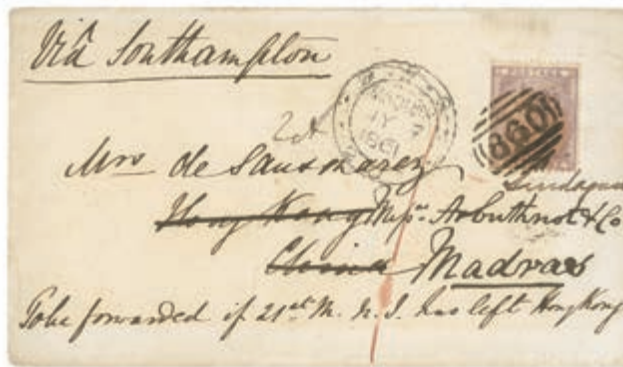 Viâ Southampton
POSTAGE
JY
1861
098
Mrs de Sausmarez
Hong Kong Messrs. Arbuthnot & Co
China Madras
To be forwarded if 21st M. N. I. has left Hong Kong